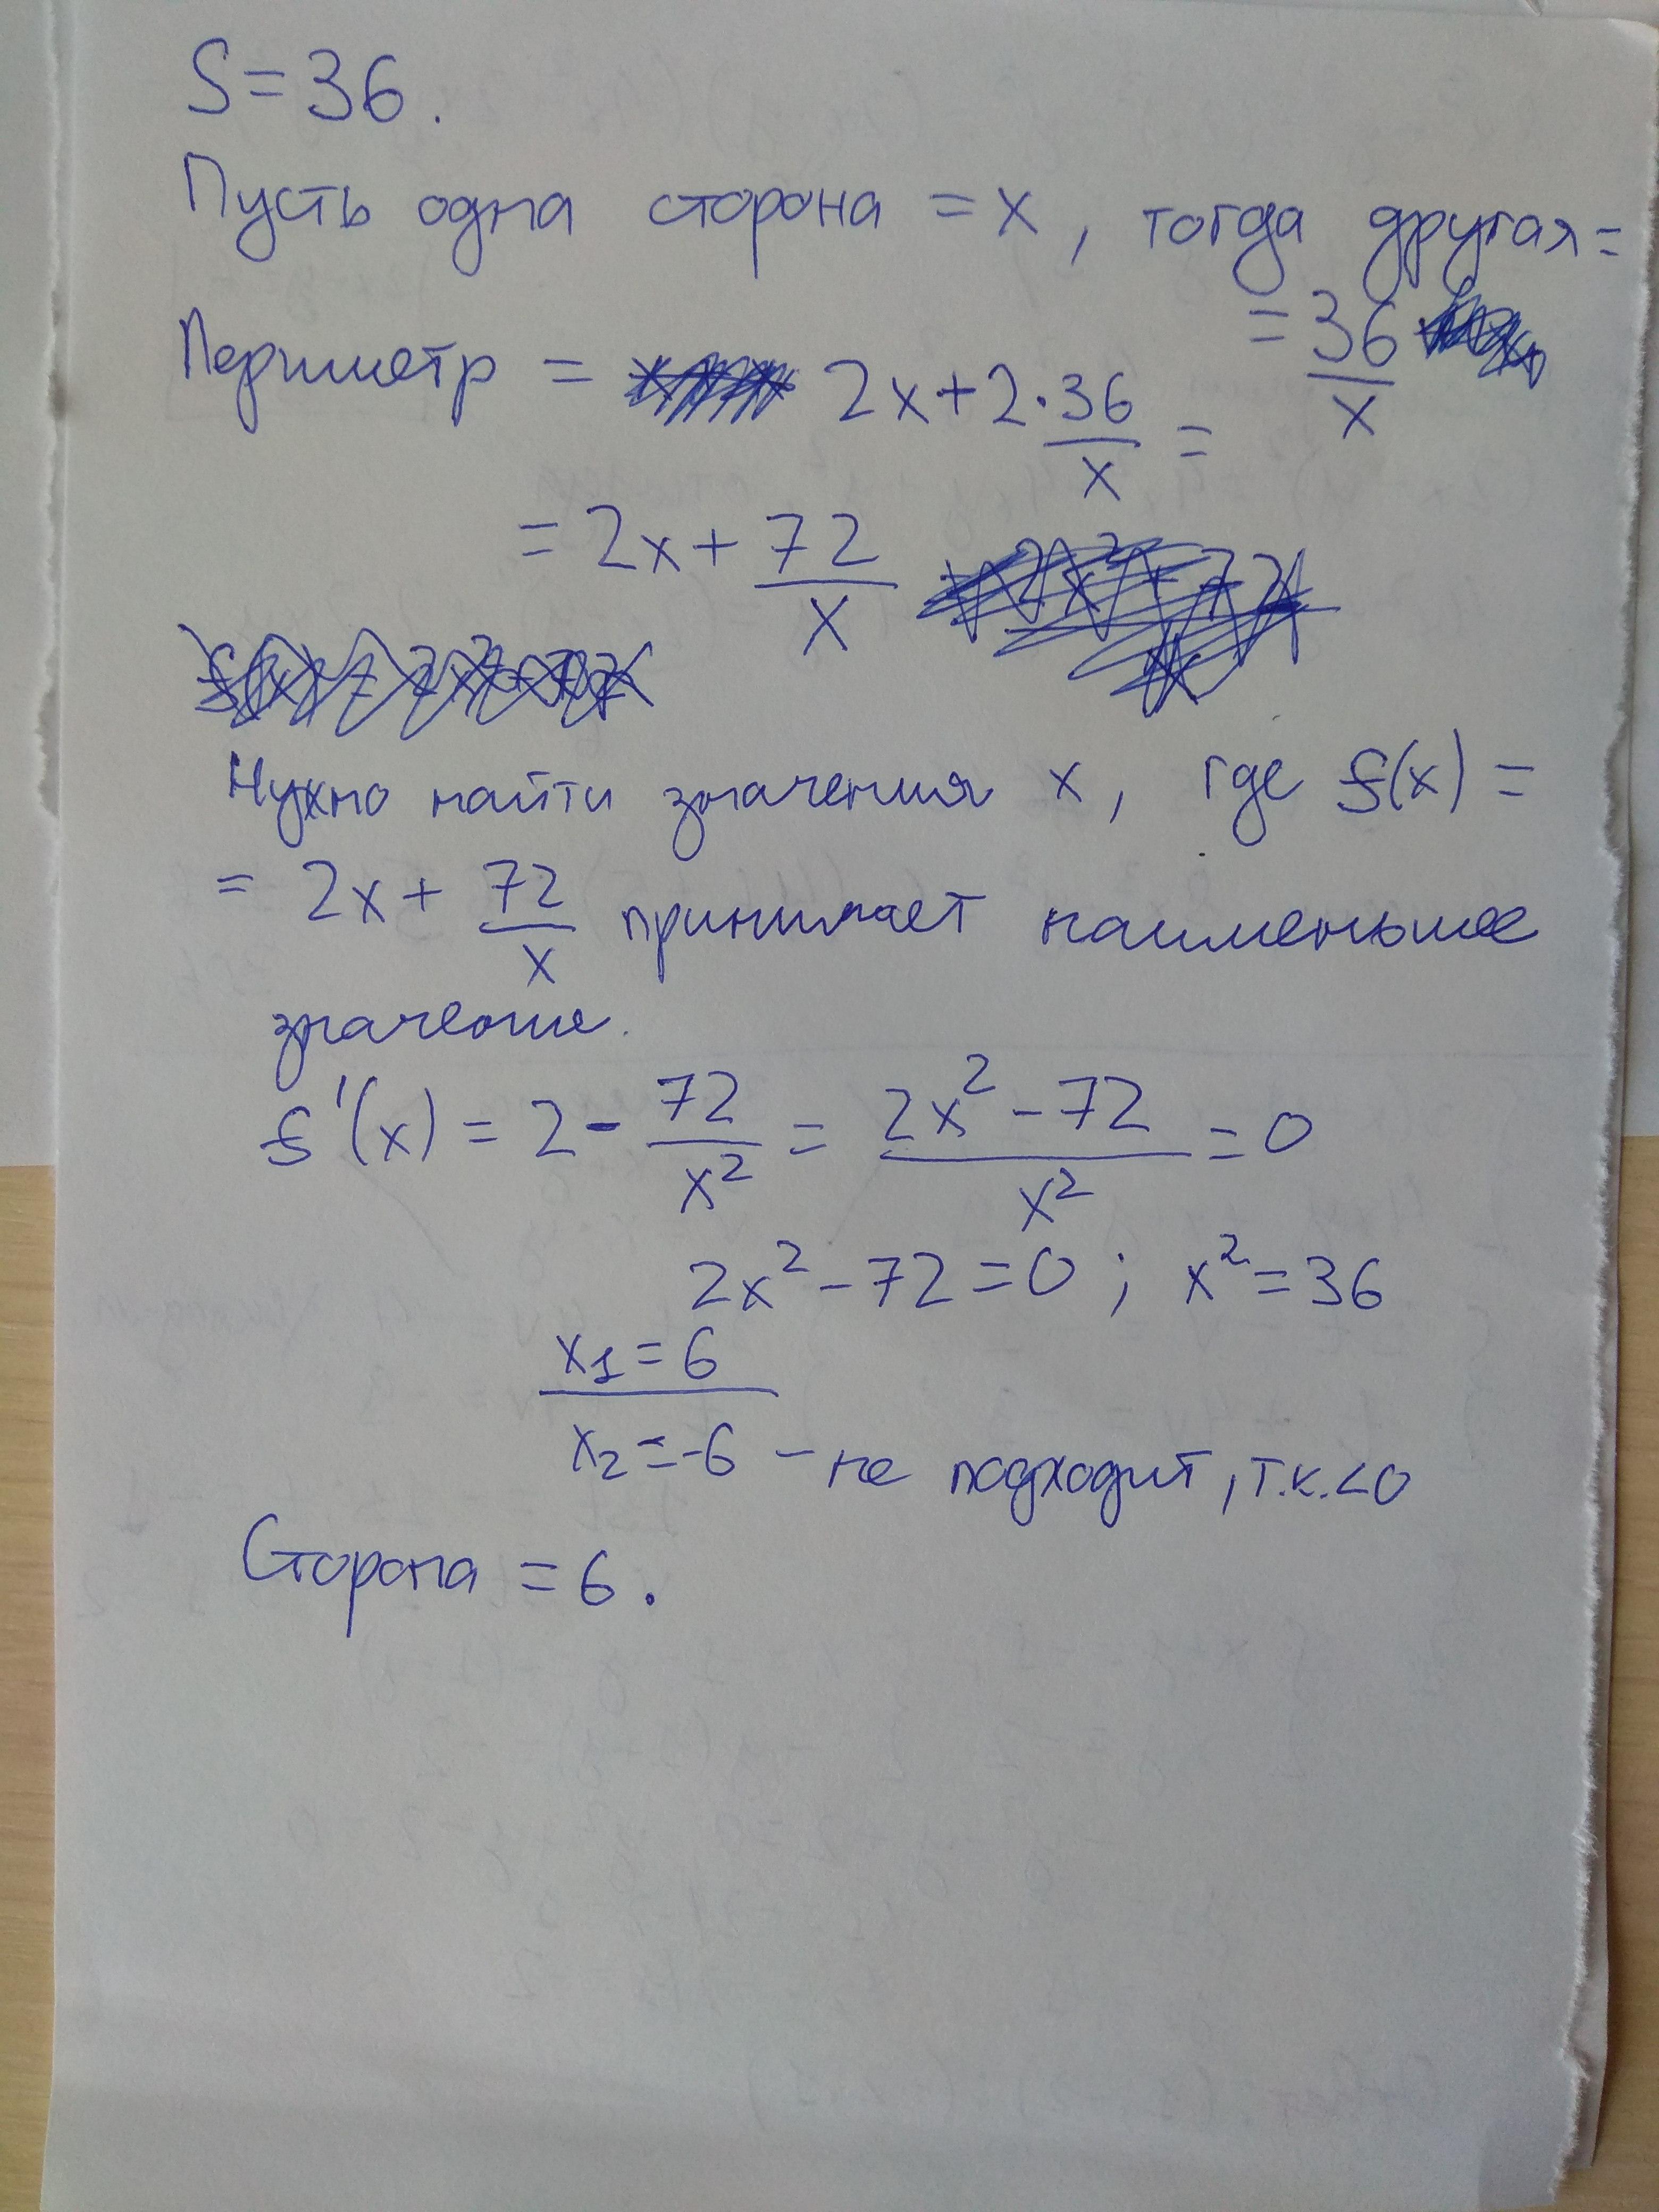 S = 36.
Пусть одна сторона = x, тогда другая =
= 36/x
Периметр = 2x + 2·36/x =
= 2x + 72/x
Нужно найти значения x, где f(x) =
= 2x + 72/x принимает наименьшее
значение.
f'(x) = 2 - 72/x² = (2x² - 72)/x² = 0
2x² - 72 = 0; x² = 36
x₁ = 6
x₂ = -6 - не подходит, т.к. < 0
Сторона = 6.